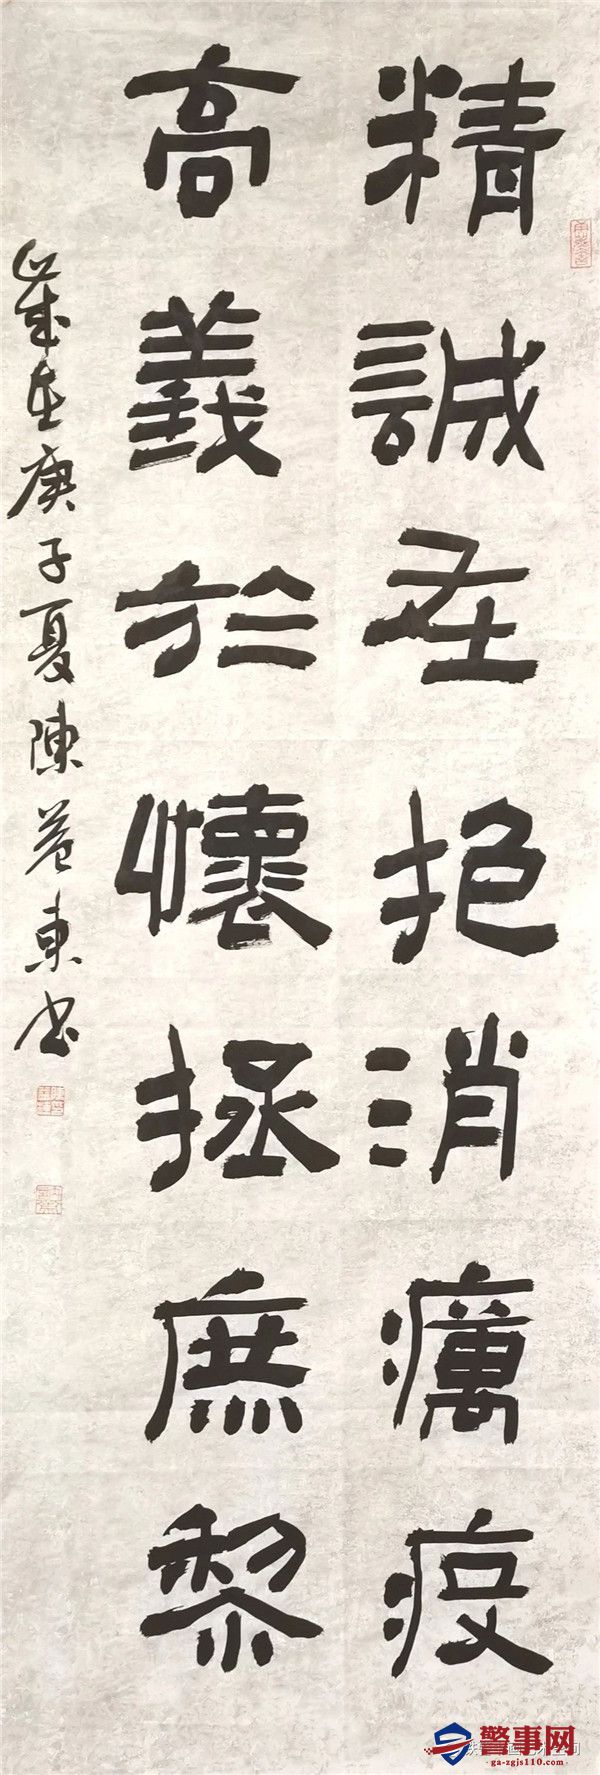 精誠在抱消癘疫
高義於懷拯庶黎
歲在庚子夏陳東书
警事网
ga-zgjs110.com